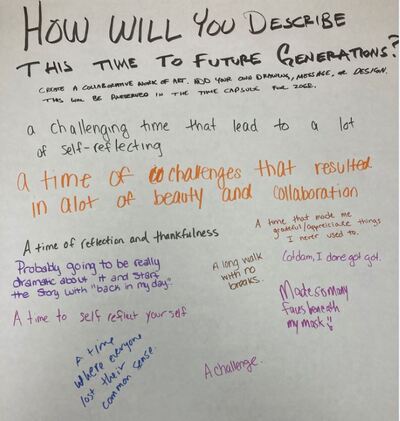 HOW WILL YOU DESCRIBE
THIS TIME TO FUTURE GENERATIONS?
CREATE A COLLABORATIVE WORK OF ART. ADD YOUR OWN DRAWING, MESSAGE, OR DESIGN.
THIS WILL BE PRESERVED IN THE TIME CAPSULE FOR
a challenging time that lead to a lot
of self-reflecting
a time of challenges that resulted
in alot of beauty and collaboration
A time that made me
grateful/appreciate things
I never used to.
A time of reflection and thankfulness
Probably going to be really
dramatic about it and start
the story with "back in my day".
A long walk
with no
breaks.
Cotdam, I done got got.
A time to self reflect yourself
Made so many
faces beneath
my mask!!
A time
where everyone
lost their
common sense.
A challenge.